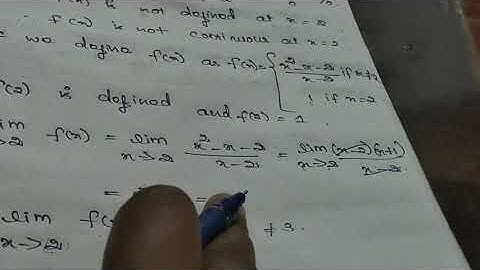 f(x) is not defined at x = 2
f(x) is not continuous at x = 2
we define f(x) as f(x) = { x² - x - 2 / x - 2 if x ≠ 2
1 if x = 2
f(2) is defined and f(2) = 1
lim x→2 f(x) = lim x→2 x² - x - 2 / x - 2 = lim x→2 (x-2)(x+1) / x - 2
=
lim x→2 ≠